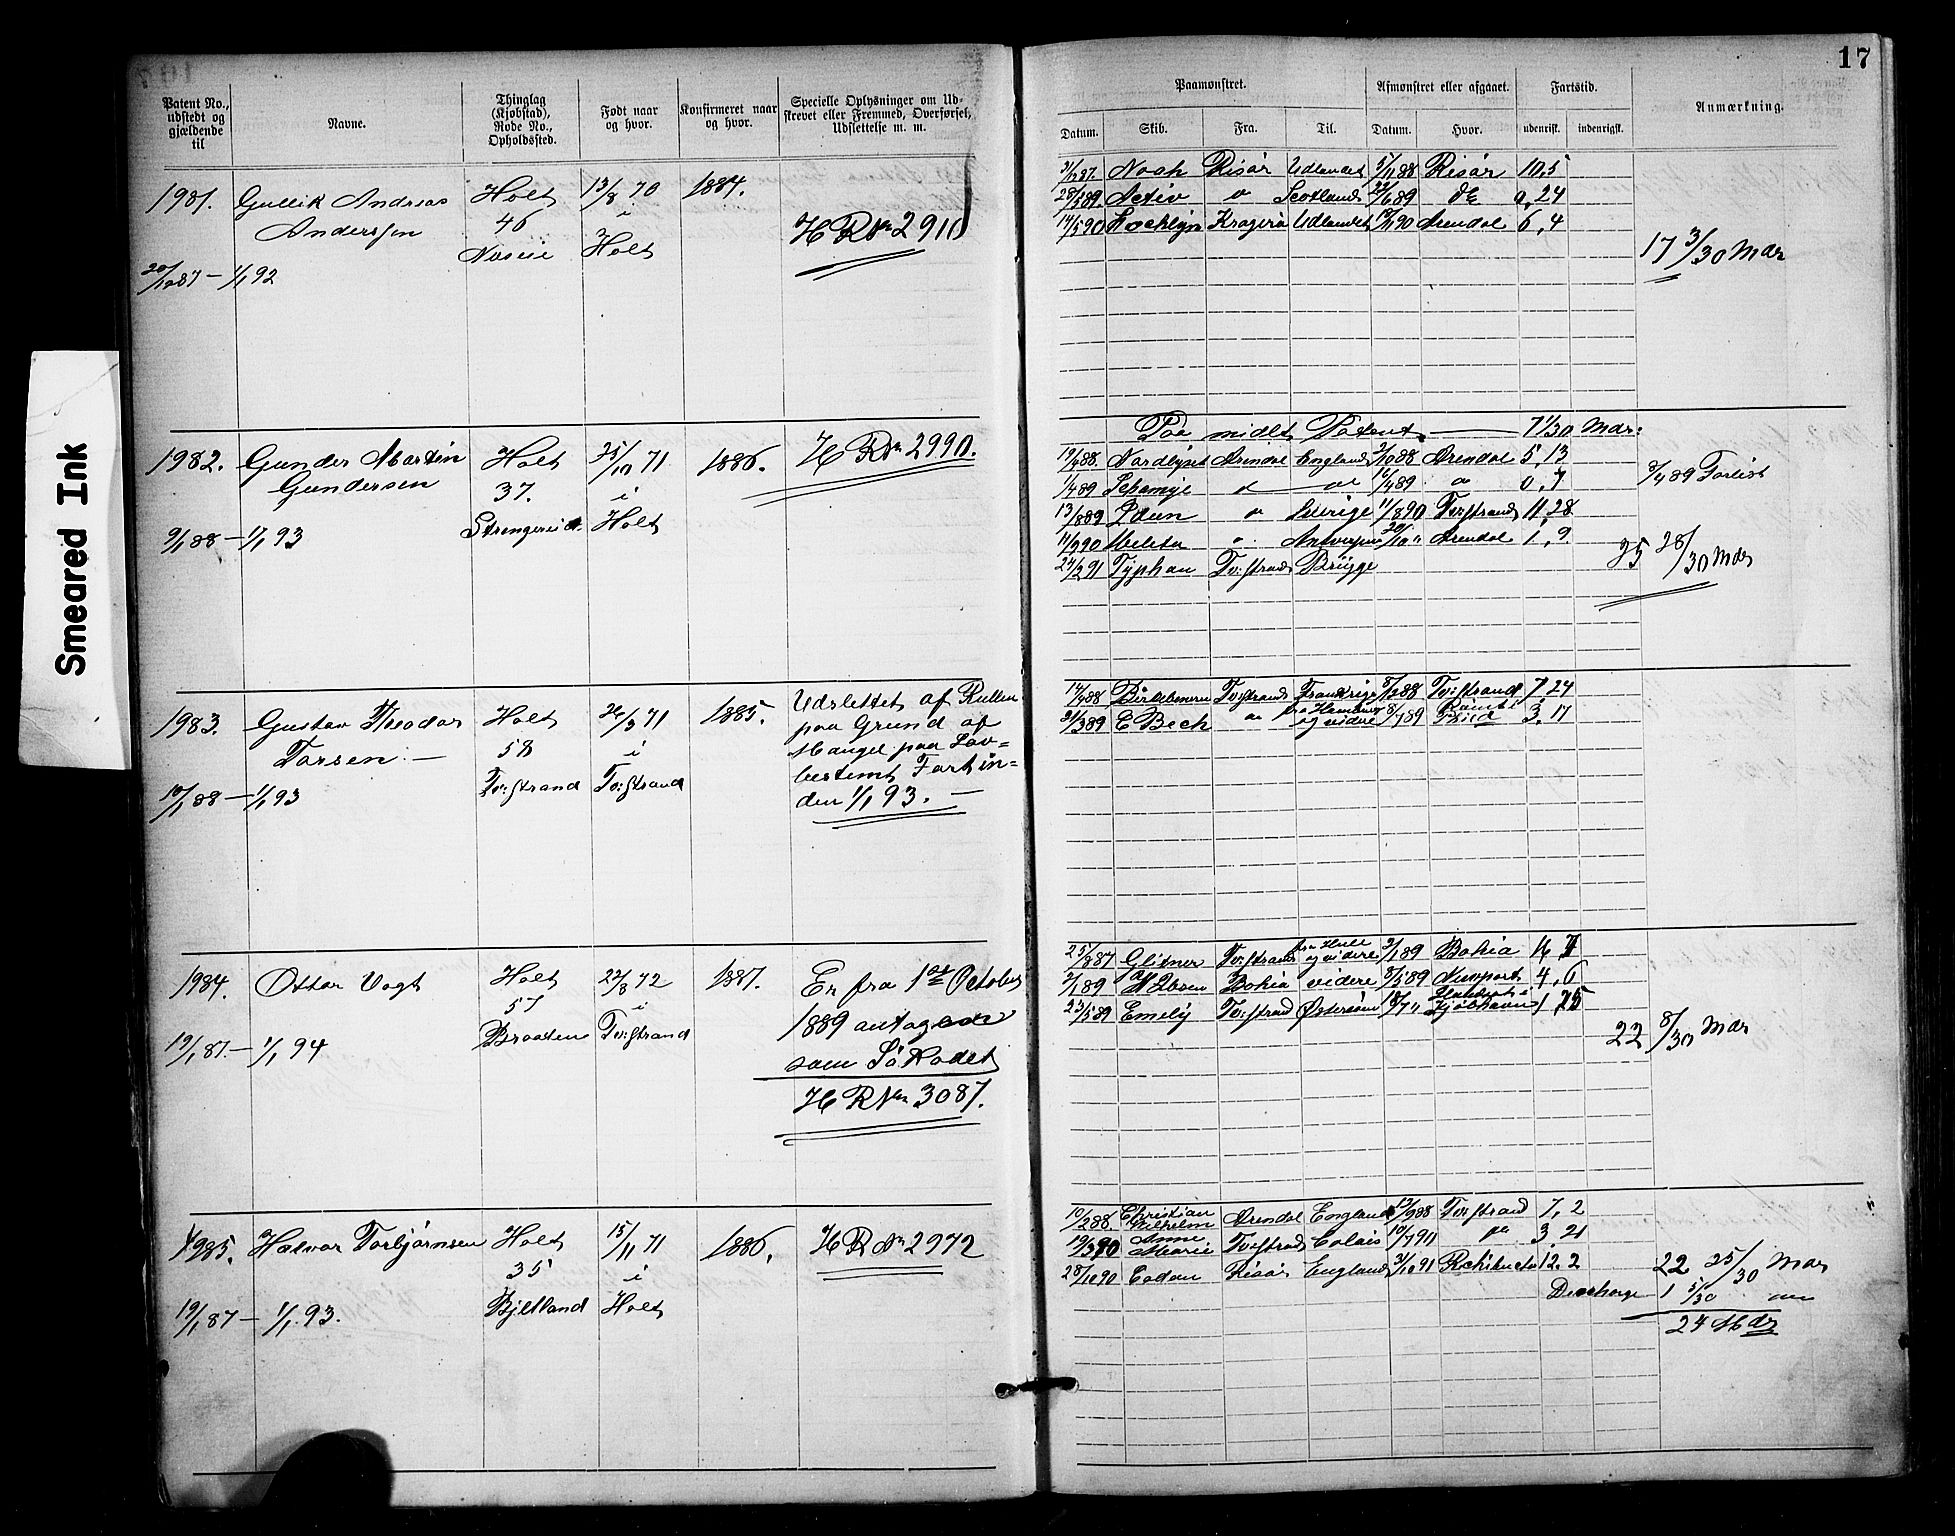 17
Smeared Ink
Patent No., udstedt og gjældende til
Navne.
Thinglag (Kjøbstad), Rode No., Opholdssted.
Født naar og hvor.
Konfirmeret naar og hvor.
Specielle Oplysninger om Udskrevet eller Fremmed, Overførsel, Udslettelse m. m.
Paamønstret.
Afmønstret eller afgaaet.
Fartstid.
Anmærkning.
Datum. Skib. Fra. Til. Datum. Hvor. udenrigsk. indenrigsk.
1981. Gullik Andreas Holt 13/8 70 1884.
Anderssen 46 i H R No 2910
Holt
20/10 87 — 1/1 92
Noah Risør Udlandet 5/11 88 Risør 10,5
28/3 89 Activ " Scotland 22/6 89 do 0,24
14/5 90 Lochlyn Kragerø Udlandet Arendal 6,4
17 3/30 Mdr
1982. Gunder Martin Holt 25/10 71 1886. H R No 2990.
Gundersen 37. i
Strengereid. Holt
9/1 88 — 1/1 93
Paa midlt. Patent — 7 1/30 Mdr:
19/4 88. Nordlyset Arendal England 2/10 88 Arendal 5, 13
1/4 89 " " 11/4 89 " 0, 7
8/4 89 Forlist
13/8 89 " Sverige 11/8 90 Tv:strand 11, 28
11/9 90 " Antwerpen 20/10 " Arendal 1, 9.
25 28/30 Mdr
24/2 91 Typhan Tv:strand Brügge
1983. Gustav Theodor Holt 26/3 71 1885. Udslettet af Rullen
Tarsen. — 58 i paa Grund af
Mangel paa Lov=
Tv:strand Tv:strand bestemt Fart in=
10/1 88 — 1/1 93 den 1/1 93. —
14/4 88 Tv:strand Frankrige 8/12 88 Tv:strand 7 24
31/3 89 E Bech " fra Hamburg og videre 8/7 89 3, 17
1984. Ottar Vogt Holt 22/8 72 1887. Er fra 1ste October
57 i 1889 antagen
Braaten Tv:strand som Sø Kadet
19/1 87. — 1/1 94
H R No 3087.
25/8 87 Glitner Tv:strand fra Hull og videre 2/1 89 Bahia 16 7
2/1 89 Bahia videre 8/5 89 Newport 4, 6
23/5 89 Emely Tv:strand Østersøen 18/7 " Kjøbhavn 1, 25
22 8/30 Mdr
1985. Halvor Torbjørnsen Holt 15/11 71 1886. H R No 2972
35 i
Holt
19/1 87 — 1/1 93.
10/2 88. Christian Wilhelm Arendal England 12/9 88 Tv:strand 7, 2
19/3 90 Anne Marie Tv:strand Calais 19/7 90 do 3, 21
28/10 90 Risør England 31/10 91 12. 2
22 25/30 Mdr
Discharge 1 5/30
24 Mdr